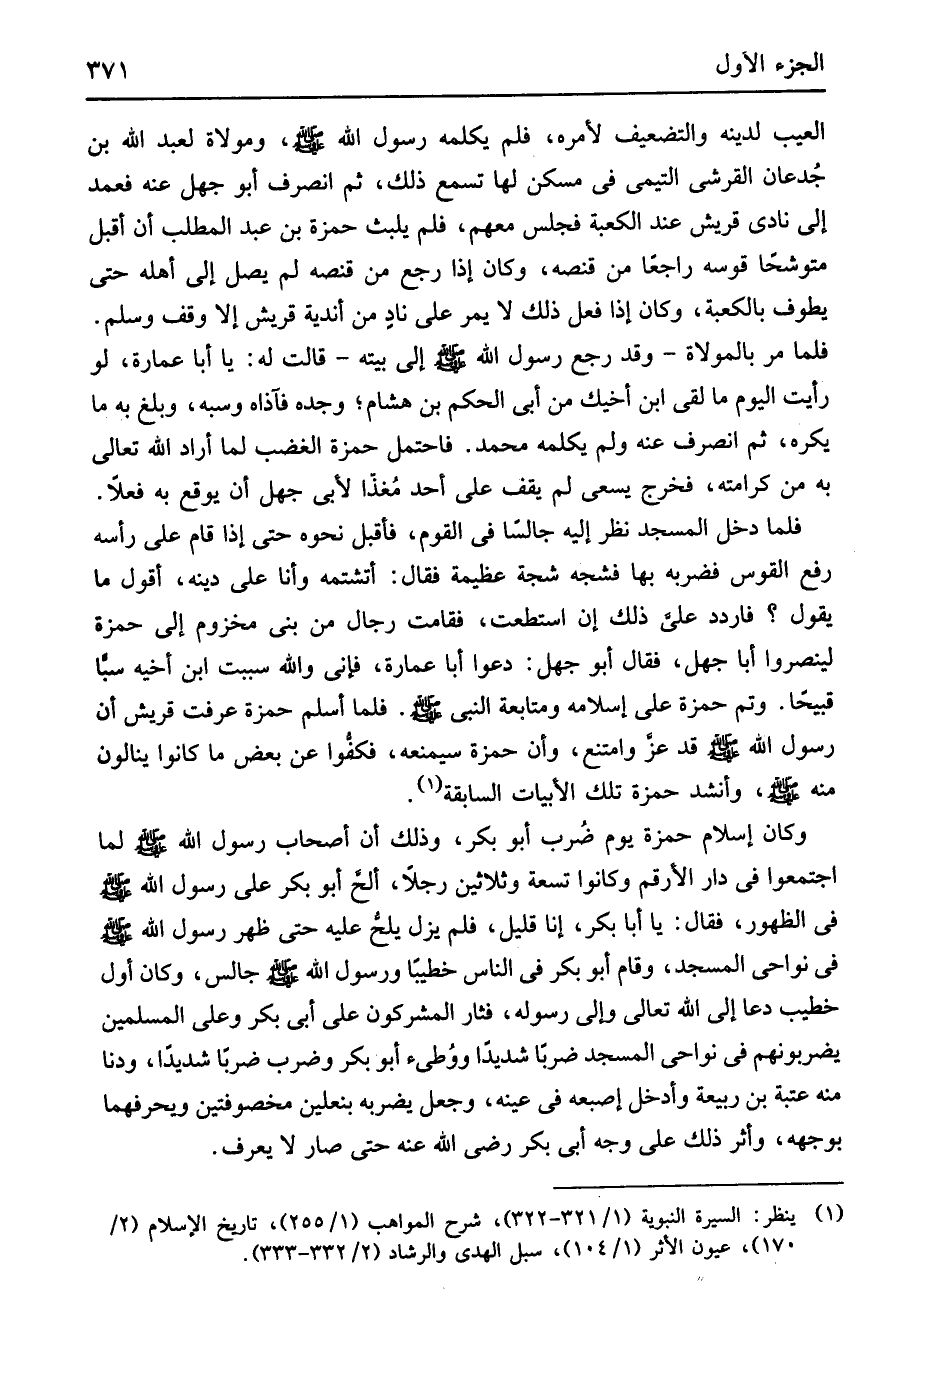 الجزء الأول ٣٧١
العيب لدينه والتضعيف لأمره، فلم يكلمه رسول الله ﷺ، ومولاة لعبد الله بن
جُدعان القرشى التيمى فى مسكن لها تسمع ذلك، ثم انصرف أبو جهل عنه فعمد
إلى نادى قريش عند الكعبة فجلس معهم، فلم يلبث حمزة بن عبد المطلب أن أقبل
متوشحًا قوسه راجعًا من قنصه، وكان إذا رجع من قنصه لم يصل إلى أهله حتى
يطوف بالكعبة، وكان إذا فعل ذلك لا يمر على نادٍ من أندية قريش إلا وقف وسلم.
فلما مر بالمولاة - وقد رجع رسول الله ﷺ إلى بيته - قالت له: يا أبا عمارة، لو
رأيت اليوم ما لقى ابن أخيك من أبى الحكم بن هشام؛ وجده فآذاه وسبه، وبلغ به ما
يكره، ثم انصرف عنه ولم يكلمه محمد. فاحتمل حمزة الغضب لما أراد الله تعالى
به من كرامته، فخرج يسعى لم يقف على أحد مُغذّا لأبى جهل أن يوقع به فعلاً.
فلما دخل المسجد نظر إليه جالسًا فى القوم، فأقبل نحوه حتى إذا قام على رأسه
رفع القوس فضربه بها فشجه شجة عظيمة فقال: أتشتمه وأنا على دينه، أقول ما
يقول ؟ فاردد علىَّ ذلك إن استطعت، فقامت رجال من بنى مخزوم إلى حمزة
لينصروا أبا جهل، فقال أبو جهل: دعوا أبا عمارة، فإنى والله سببت ابن أخيه سبًّا
قبيحًا. وتم حمزة على إسلامه ومتابعة النبى ﷺ. فلما أسلم حمزة عرفت قريش أن
رسول الله ﷺ قد عزَّ وامتنع، وأن حمزة سيمنعه، فكفُّوا عن بعض ما كانوا ينالون
منه ﷺ، وأنشد حمزة تلك الأبيات السابقة(١).
وكان إسلام حمزة يوم ضُرب أبو بكر، وذلك أن أصحاب رسول الله ﷺ لما
اجتمعوا فى دار الأرقم وكانوا تسعة وثلاثين رجلاً، ألحَّ أبو بكر على رسول الله ﷺ
فى الظهور، فقال: يا أبا بكر، إنا قليل، فلم يزل يلحُّ عليه حتى ظهر رسول الله ﷺ
فى نواحى المسجد، وقام أبو بكر فى الناس خطيبًا ورسول الله ﷺ جالس، وكان أول
خطيب دعا إلى الله تعالى وإلى رسوله، فثار المشركون على أبى بكر وعلى المسلمين
يضربونهم فى نواحى المسجد ضربًا شديدًا ووُطىء أبو بكر وضرب ضربًا شديدًا، ودنا
منه عتبة بن ربيعة وأدخل إصبعه فى عينه، وجعل يضربه بنعلين مخصوفتين ويحرفهما
بوجهه، وأثر ذلك على وجه أبى بكر رضى الله عنه حتى صار لا يعرف.
(١) ينظر: السيرة النبوية (١/ ٣٢١-٣٢٢)، شرح المواهب (١/ ٢٥٥)، تاريخ الإسلام (٢/
١٧٠)، عيون الأثر (١/ ١٠٤)، سبل الهدى والرشاد (٢/ ٣٣٢-٣٣٣).